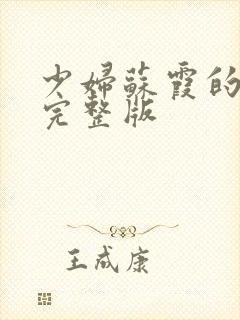 少婦蘇霞的
完整版
王成康